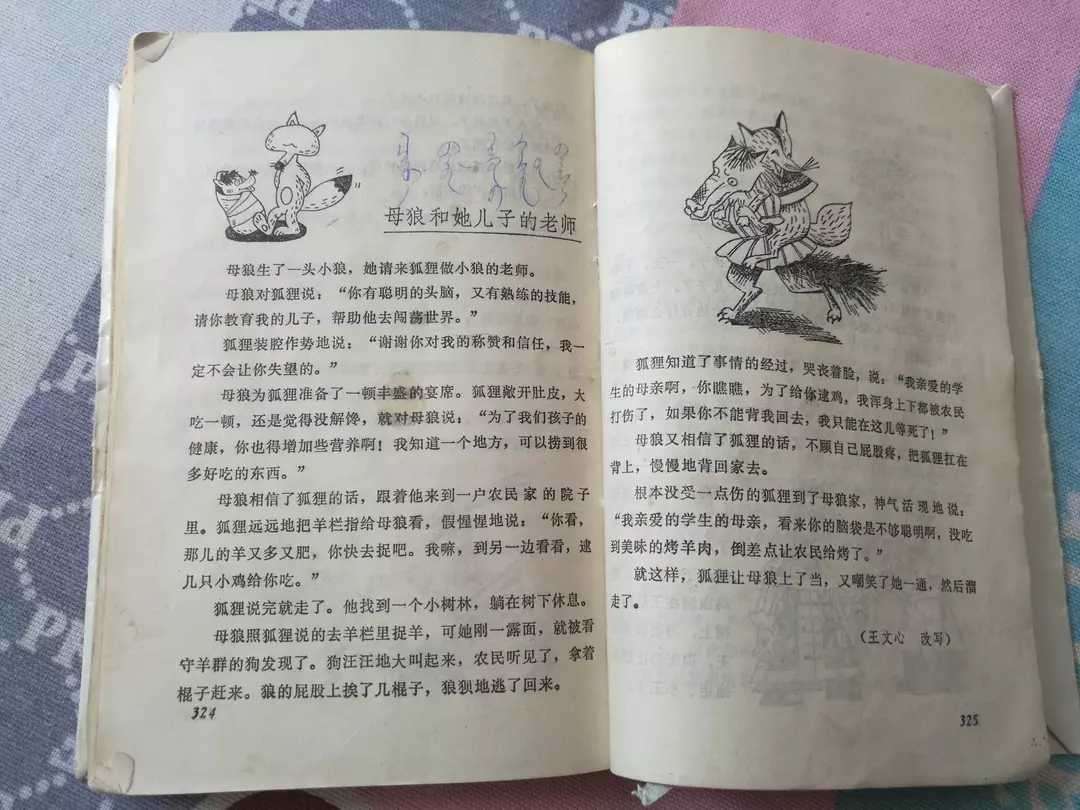 母狼和她儿子的老师
母狼生了一头小狼，她请来狐狸做小狼的老师。
母狼对狐狸说：“你有聪明的头脑，又有熟练的技能，
请你教育我的儿子，帮助他去闯荡世界。”
狐狸装腔作势地说：“谢谢你对我的称赞和信任，我一
定不会让你失望的。”
母狼为狐狸准备了一顿丰盛的宴席。狐狸敞开肚皮，大
吃一顿，还是觉得没解馋，就对母狼说：“为了我们孩子的
健康，你也得增加些营养啊！我知道一个地方，可以捞到很
多好吃的东西。”
母狼相信了狐狸的话，跟着他来到一户农民家的院子
里。狐狸远远地把羊栏指给母狼看，假惺惺地说：“你看，
那儿的羊又多又肥，你快去捉吧。我嘛，到另一边看看，逮
几只小鸡给你吃。”
狐狸说完就走了。他找到一个小树林，躺在树下休息。
母狼照狐狸说的去羊栏里捉羊，可她刚一露面，就被看
守羊群的狗发现了。狗汪汪地大叫起来，农民听见了，拿着
棍子赶来。狼的屁股上挨了几棍子，狼狈地逃了回来。
324
狐狸知道了事情的经过，哭丧着脸，说：“我亲爱的学
生的母亲啊，你瞧瞧，为了给你逮鸡，我浑身上下都被农民
打伤了，如果你不能背我回去，我只能在这儿等死了！”
母狼又相信了狐狸的话，不顾自己屁股疼，把狐狸扛在
背上，慢慢地背回家去。
根本没受一点伤的狐狸到了母狼家，神气活现地说：
“我亲爱的学生的母亲，看来你的脑袋是不够聪明啊，没吃
到美味的烤羊肉，倒差点让农民给烤了。”
就这样，狐狸让母狼上了当，又嘲笑了她一通，然后溜
走了。
（王文心 改写）
325